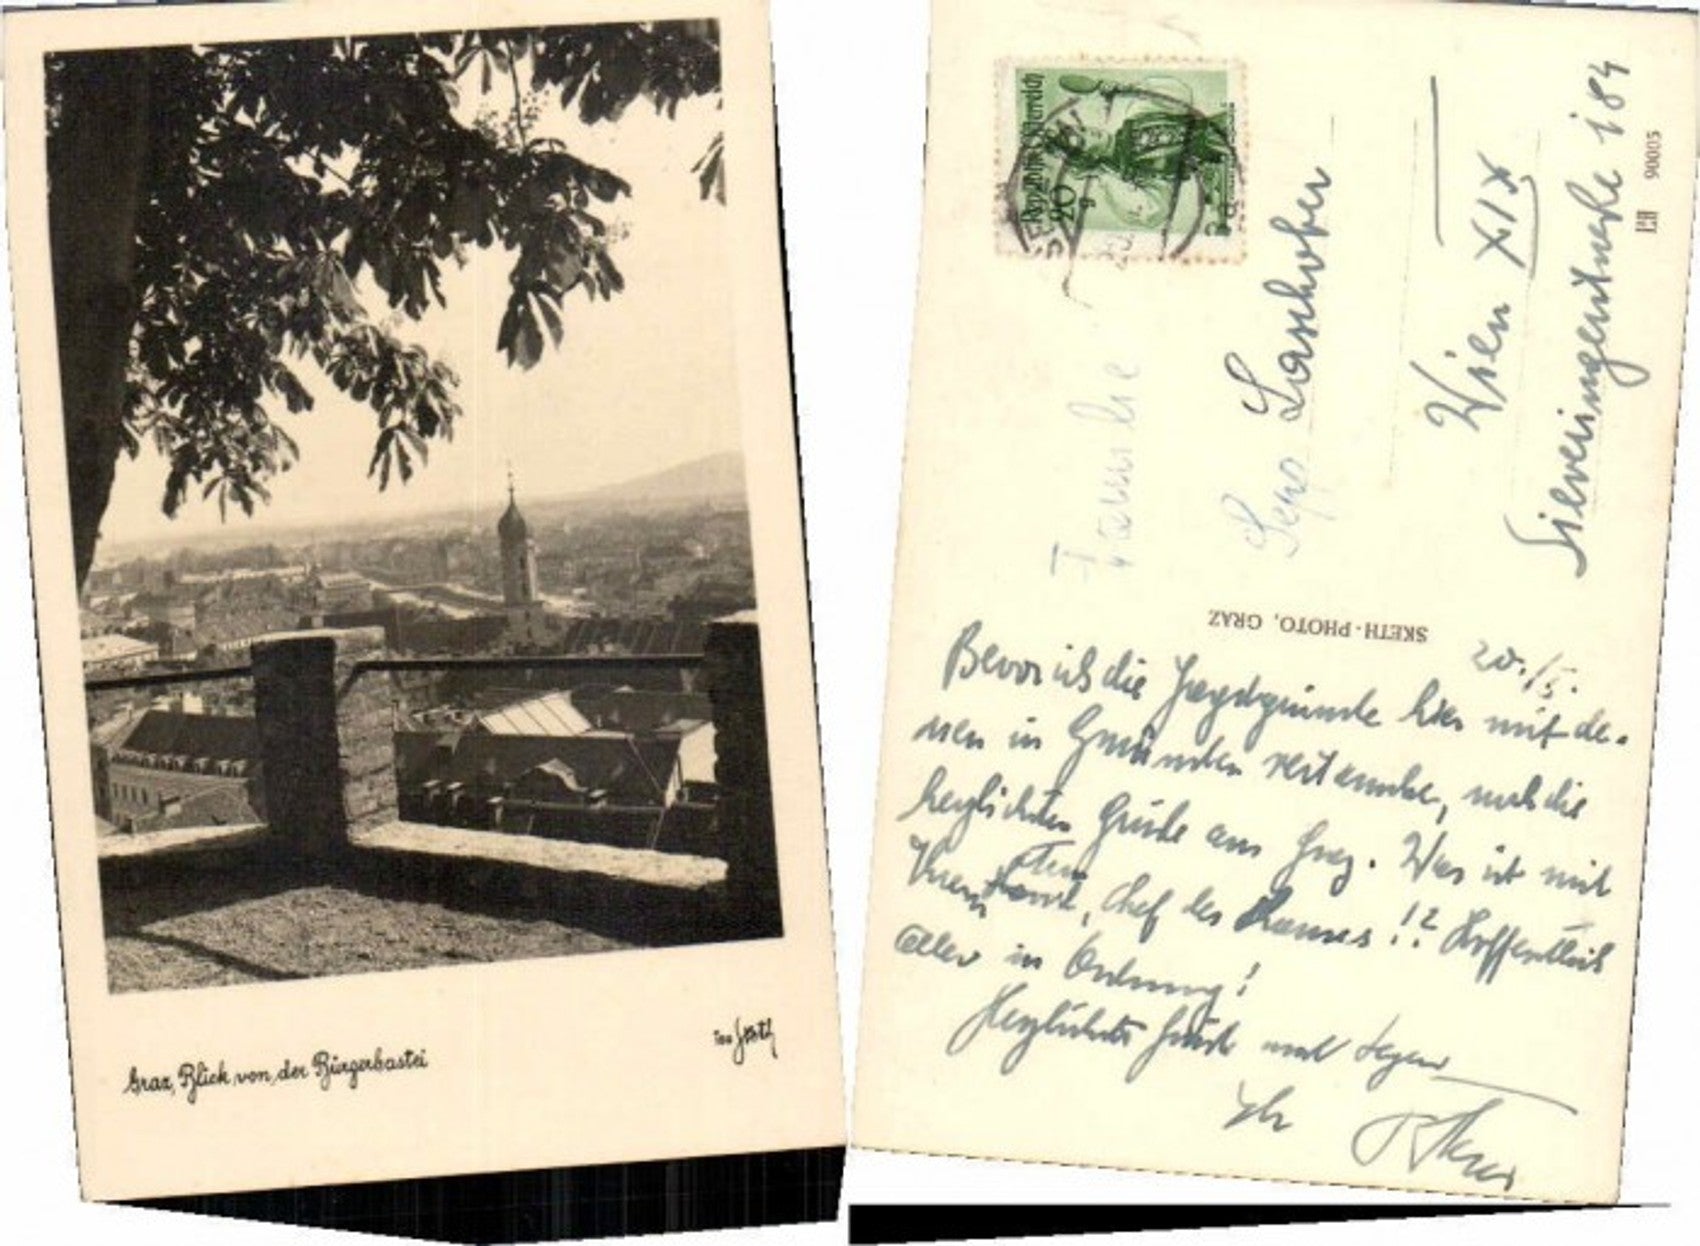 Graz, Blick von der Bürgerbastei
Republik Österreich
20 g
Familie
Sepp Laschober
Wien XIX
Sieveringerstraße 184
90005
SKETH-PHOTO, GRAZ
20./5.
Bevor ich die Jagdgründe hier mit de-
nen in Gmünden vertausche, noch die
herzlichsten Grüße aus Graz. Was ist mit
Chef des Hauses!? Hoffentlich
alles in Ordnung!
Herzlichste Grüße und
Ihr